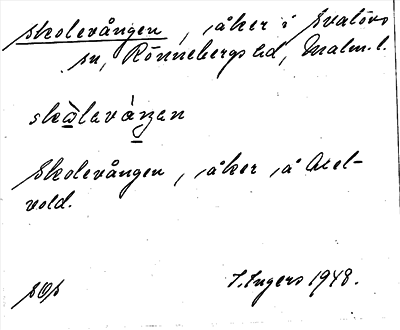 Skolevången, åker i Svalövs
sn, Rönnebergs hd, Malm. l.
skålevànen
Skolevången, åker å Axel-
vold.
I. Ingers 1948.